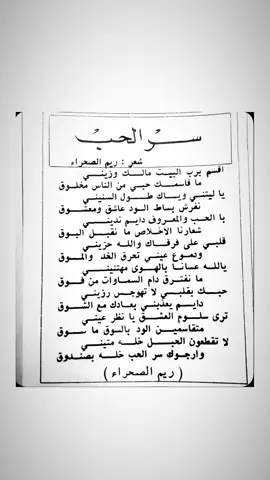 سر الحب
شعر : ريم الصحراء
اقسم برب البيت مالك وزيني
ما قاسمك حبي من الناس مخلوق
يا ليتني وياك طول السنيني
نفرش بساط الود عاشق ومعشوق
با الحب والمعروف دايم نديني
شعارنا الاخلاص ما نقبل البوق
قلبي على فرقاك والله حزيني
ودموع عيني تعرق الخد والموق
يالله عسانا بالهوى مهتنيني
ما نفترق دام السماوات من فوق
حبك بقلبي لا تهوجس رزيني
دايم يعذبني بعادك مع الشوق
ترى سلوم العشق يا نظر عيني
متقاسمين الود بالسوق ما سوق
لا تقطعون الحبل خله متيني
وارجوك سر الحب خله بصندوق
( ريم الصحراء )